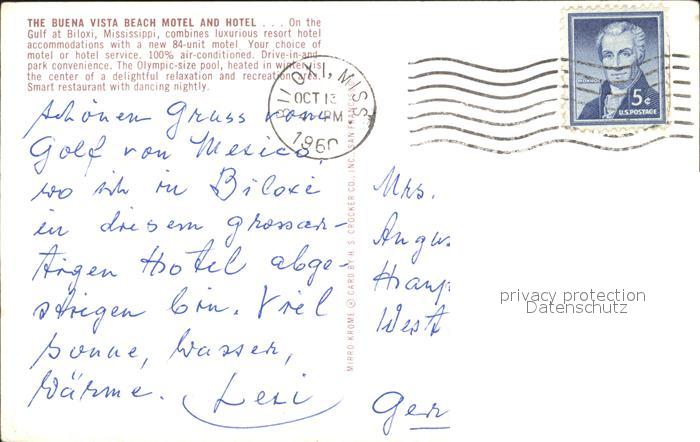 THE BUENA VISTA BEACH MOTEL AND HOTEL . . . On the
Gulf at Biloxi, Mississippi, combines luxurious resort hotel
accommodations with a new 84-unit motel. Your choice of
motel or hotel service. 100% air-conditioned. Drive-in-and
park convenience. The Olympic-size pool, heated in winter, is
the center of a delightful relaxation and recreation area.
Smart restaurant with dancing nightly.
BILOXI, MISS.
OCT 13
PM
1960
MONROE
5¢
U.S. POSTAGE
Schönen Gruss vom
Golf von Mexico,
wo ich in Biloxi
in diesem grossar-
tigen Hotel abge-
stiegen bin. Viel
Sonne, Wasser,
Wärme. Lesi
MIRRO-KROME ® CARD BY H. S. CROCKER CO., INC. SAN FRANC
Mrs.
Angus
Haup
West
Ger
privacy protection
Datenschutz